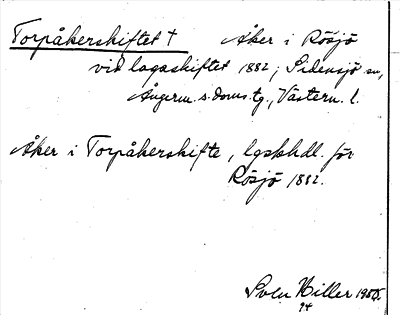 Torpåkerskiftet † Åker i Rösjö
vid lagaskiftet 1882; Sidensjö sn,
Ångerm. s. doms. tg., Västern. l.
Åker i Torpåkerskifte, lgskhdl. för
Rösjö 1882.
Sven Hiller